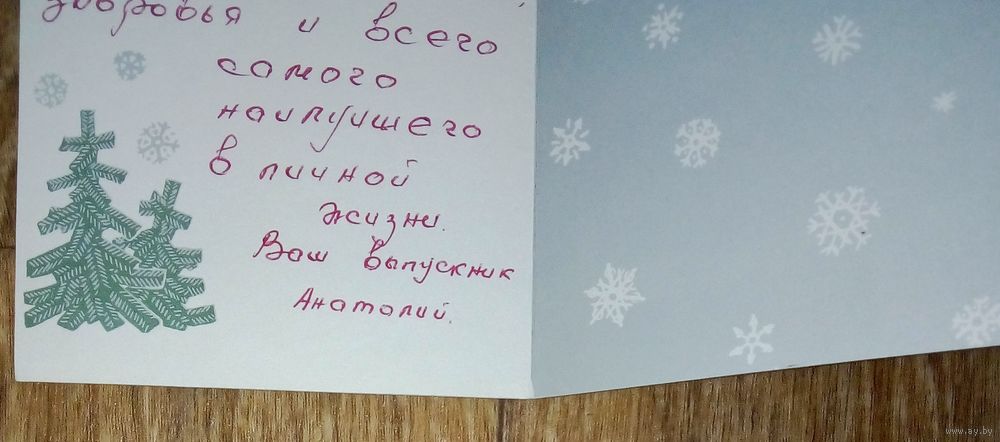 здоровья и всего
самого
наилучшего
в личной
жизни.
Ваш выпускник
Анатолий.
www.ay.by